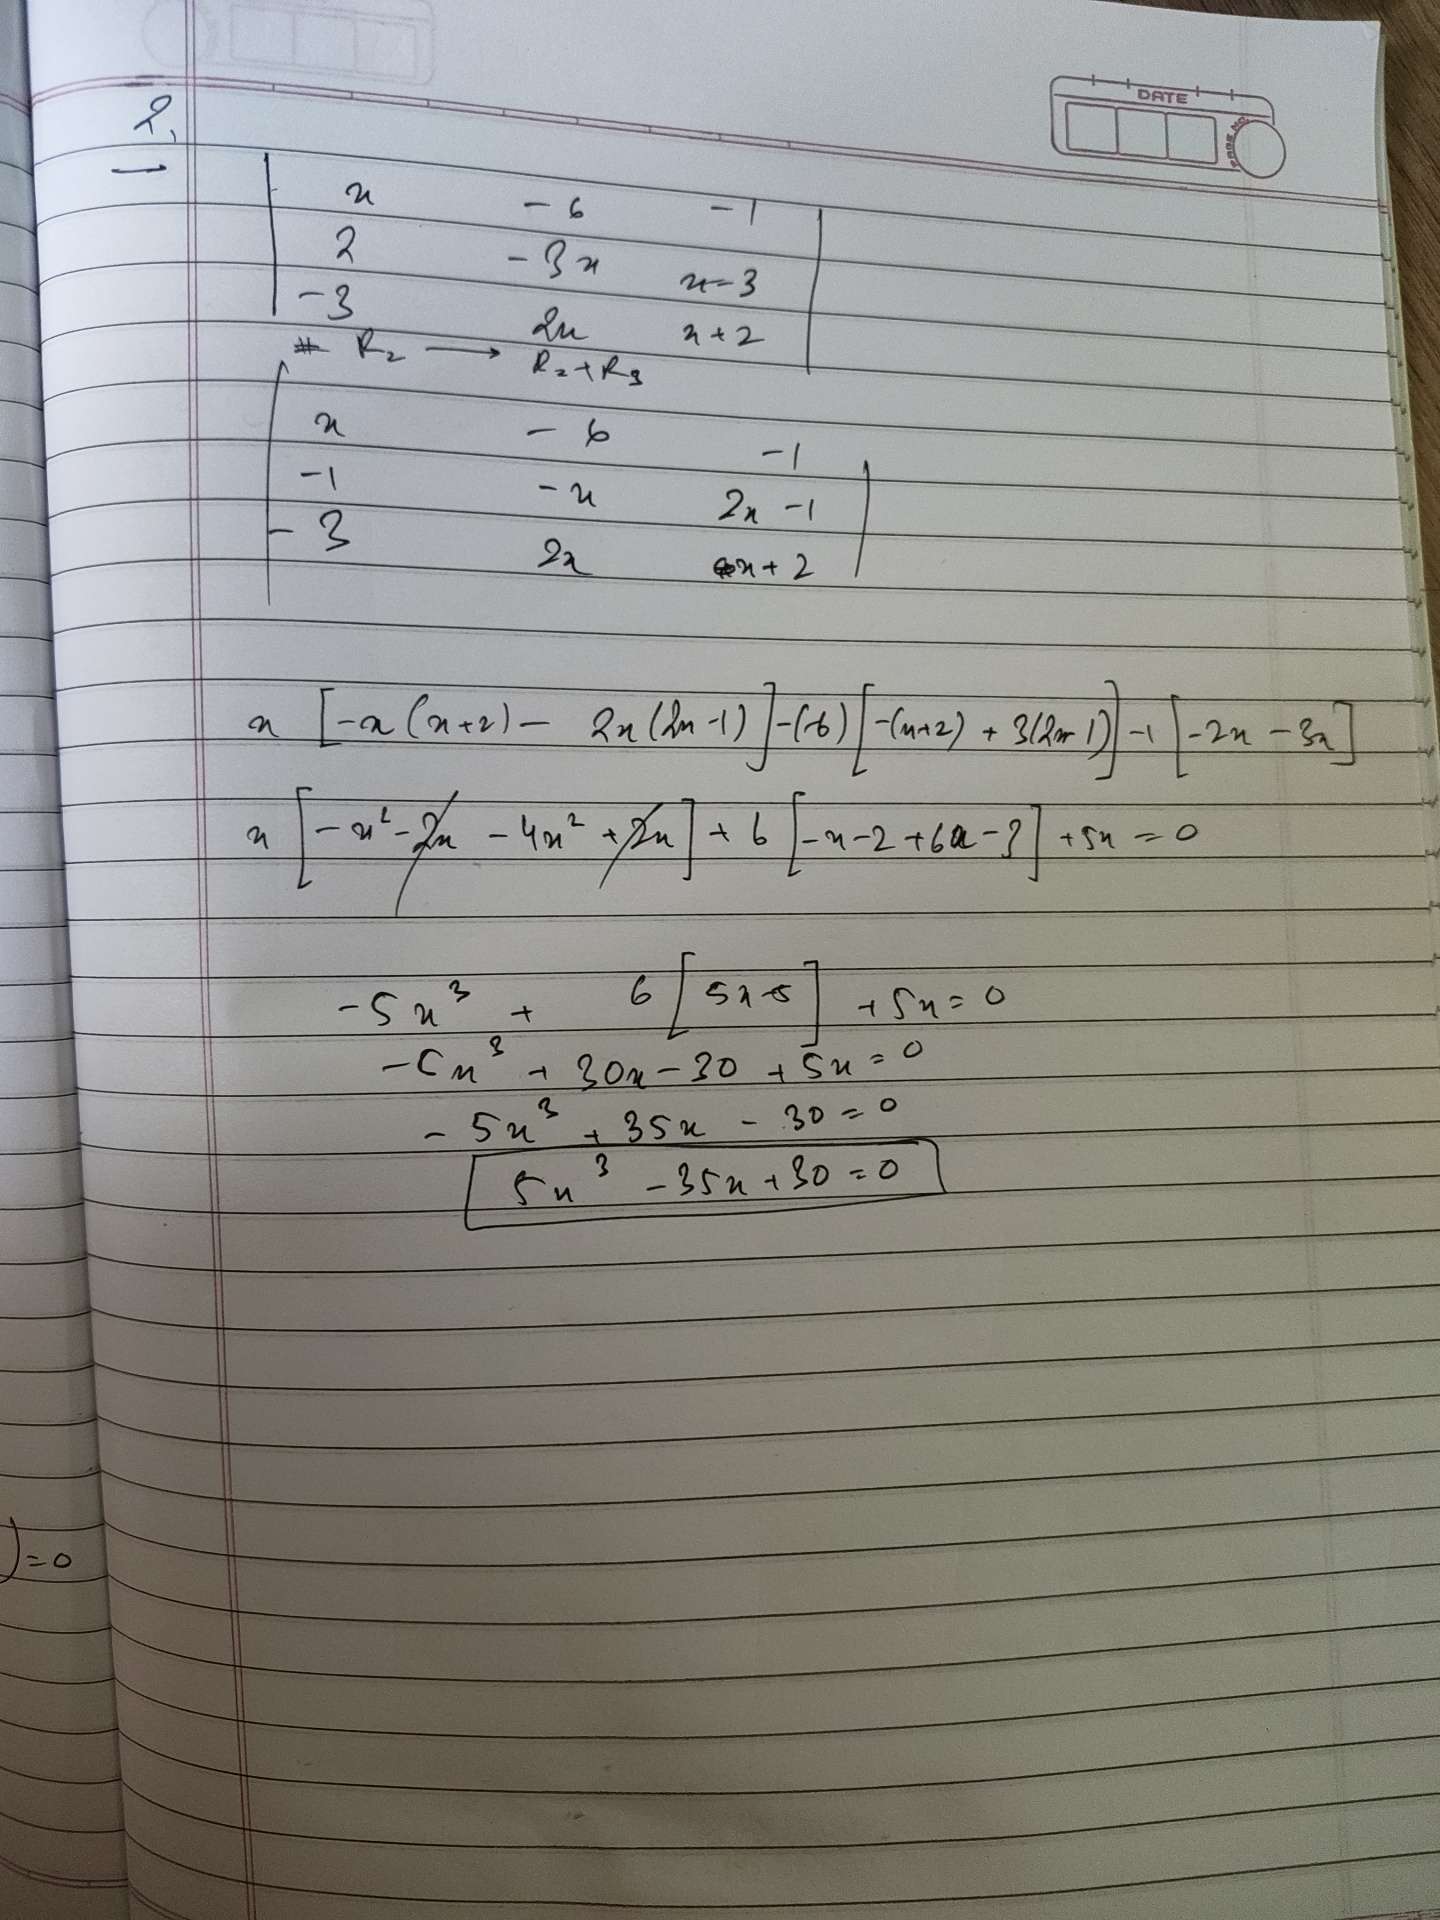 DATE
PAGE NO.
2.
x -6 -1
2 -3x x-3
-3 2x x+2
R₂ ⟶ R₂+R₃
x -6 -1
-1 -x 2x-1
-3 2x x+2
x [-x(x+2) - 2x(2x-1)] -(-6) [-(x+2) + 3(2x-1)] -1 [-2x-3x]
x [-x²-2x -4x²+2x] + 6 [-x-2+6x-3] +5x = 0
-5x³ + 6 [5x-5] +5x = 0
-5x³ + 30x-30 +5x = 0
-5x³ + 35x - 30 = 0
5x³ -35x+30 = 0
) = 0